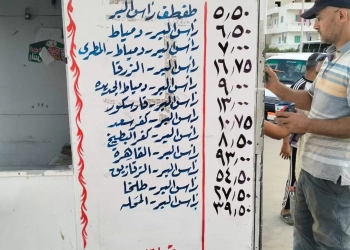 طفطف راس البر ٥,٥٠
راس البر - دمياط ٦,٥٠
راس البر - دمياط - المطرى ٧,٠٠
راس البر - الزرقا ١٦,٧٥
راس البر - دمياط الجديدة ٩,٠٠
راس البر - فارسكور ١٣,٠٠
راس البر - كفر سعد ١٠,٧٥
راس البر - كفر البطيخ ٨,٥٠
راس البر - القاهرة ٩٣,٠٠
راس البر - الزقازيق ٥٤,٥٠
راس البر - طلخا ٢٧,٥٠
راس البر - المحلة ٣٩,٥٠